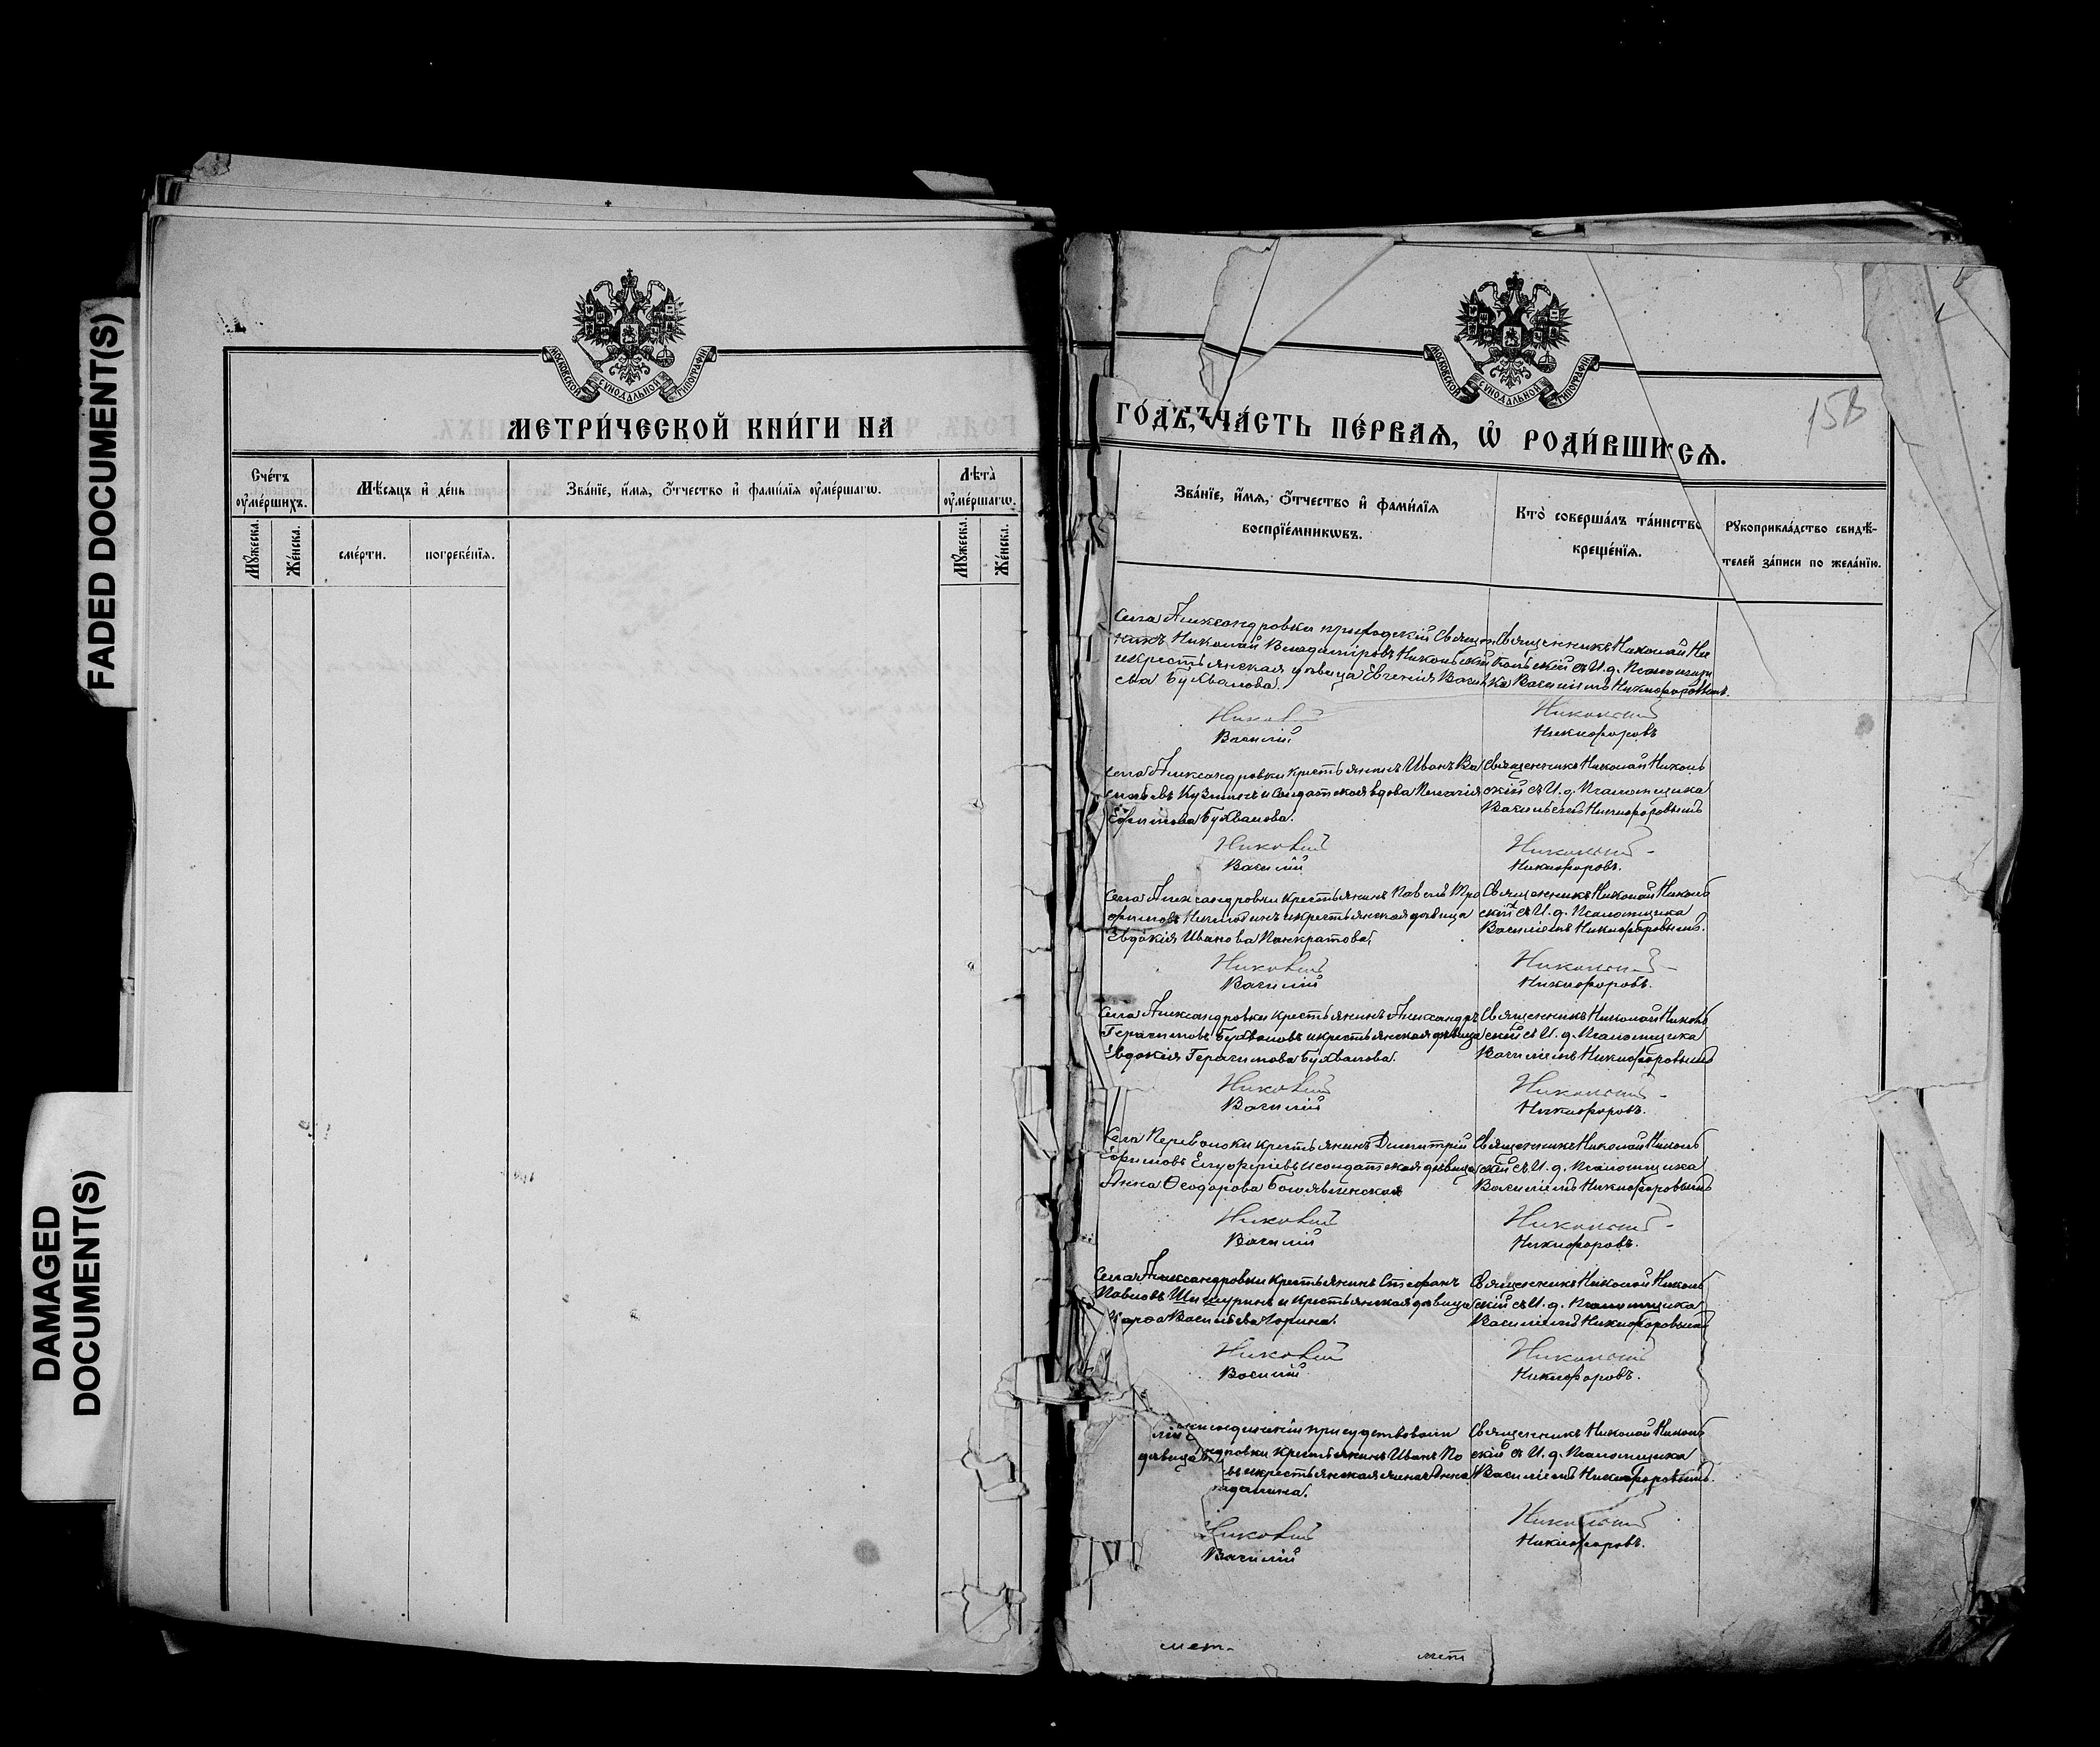 FADED DOCUMENT(S)
DAMAGED
DOCUMENT(S)
МОСКОВСКОЙ СУНОДАЛЬНОЙ ТИПОГРАФІИ
МЕТРИ́ЧЕСКОЙ КНИ́ГИ НА
Сче́тъ
ᲂу҆ме́ршихъ.
Мѣ́сяцъ и҆ де́нь
Зва́нїе, и҆́мѧ, ѻ҆́тчество и҆ фами́лїѧ ᲂу҆ме́ршагѡ.
Лѣ́та̀
ᲂу҆ме́ршагѡ.
Мꙋ́жеска.
Же́нска.
сме́рти.
погребе́нїѧ.
Мꙋ́жеска.
Же́нска.
МОСКОВСКОЙ СУНОДАЛЬНОЙ ТИПОГРАФІИ
158
ГО́ДЪ, ЧА́СТЬ ПЕ́РВАѦ, Ѡ҆ РОДИ́ВШИ СѦ.
Зва́нїе, и҆́мѧ, ѻ҆́тчество и҆ фами́лїѧ
воспрїе́мникѡвъ.
Кто̀ соверша́лъ та́инство
креще́нїѧ.
Рꙋкоприкла́дство свидѣ́-
телей за́писи по жела́нїю.
Села Александровки приходскій Священ
никъ Николай Владиміровъ Никольскій
и крестьянская дѣвица Евгенія Василь
ева Бухвалова.
Василій
Священникъ Николай Ни
кольскій съ И. д. Псаломщи
ка Василіемъ Никифоровымъ.
Никольскій
Никифоровъ
Села Александровки крестьянинъ Иванъ Ва
сильевъ Кузминъ и солдатская вдова Пелагія
Ефимова Бухвалова.
Василій
Священникъ Николай Николь
скій съ И. д. Псаломщика
Василіемъ Никифоровымъ
Никольскій
Никифоровъ.
Села Александровки крестьянинъ Павелъ Тро
фимовъ и крестьянская дѣвица
Евдокія Иванова Панкратова.
Василій
Священникъ Николай Николь
скій съ И. д. Псаломщика
Василіемъ Никифоровымъ.
Никольскій
Никифоровъ.
Села Александровки крестьянинъ Александръ
Герасимовъ Бухваловъ и крестьянская дѣвица
Евдокія Герасимова Бухвалова.
Василій
Священникъ Николай Николь
скій съ И. д. Псаломщика
Василіемъ Никифоровымъ
Никольскій
Никифоровъ.
Села Переволоки крестьянинъ Димитрій
Ефимовъ Елуферіевъ и солдатская дѣвица
Анна Ѳеодорова Богоявленская
Василій
Священникъ Николай Николь
скій съ И. д. Псаломщика
Василіемъ Никифоровымъ
Никольскій
Никифоровъ.
Села Александровки крестьянинъ Стефанъ
Павловъ и крестьянская дѣвица
Марѳа Васильева Горина.
Василій
Священникъ Николай Николь
скій съ И. д. Псаломщика
Василіемъ Никифоровымъ
Никольскій
Никифоровъ.
присутствовали
дѣвица ндровки крестьянинъ Иванъ По
и крестьянская жена Анна
Василій
Священникъ Николай Николь
скій съ И. д. Псаломщика
Василіемъ Никифоровымъ.
Никольскій
Никифоровъ.